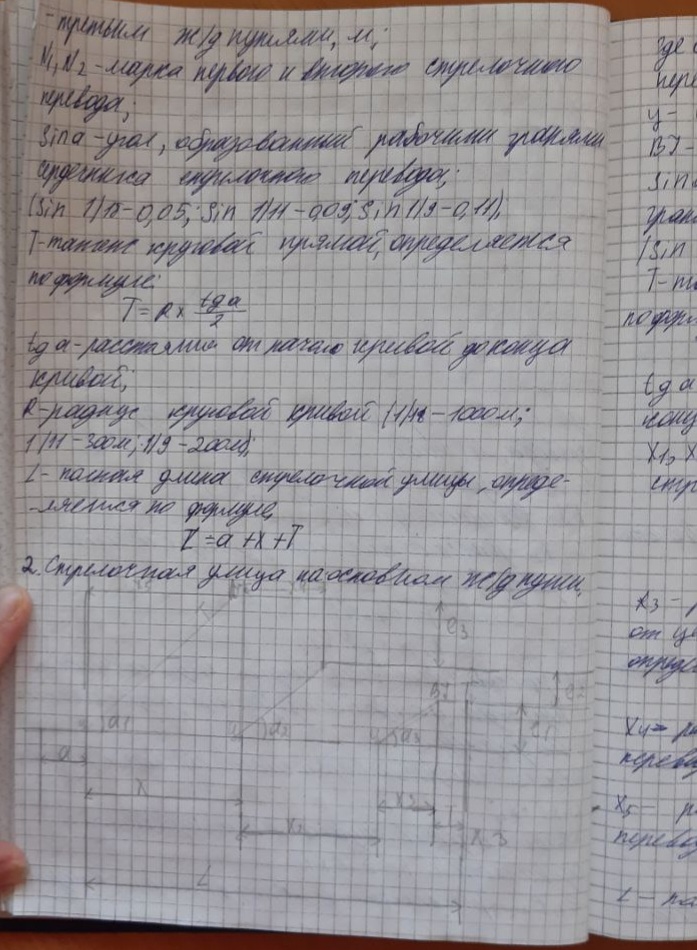 -третьим ж/д путями, м;
N1, N2 - марка первого и второго стрелочного
перевода;
Sina - угол, образованный рабочими гранями
сердечника стрелочного перевода;
(Sin 1/18-0,05; Sin 1/11-0,09; Sin 1/9-0,11);
Т-тангенс круговой прямой, определяется
по формуле:
T = R x tg a / 2
tg a - расстояние от начало кривой до конца
кривой;
R-радиус круговой кривой (1/18-1000м;
1/11-300м; 1/9-200м);
L- полная длина стрелочной улицы, опреде-
-ляется по формуле,
L = a + x + T
2. Стрелочная улица на основном ж/д пути,
e3
BT
e2
e1
a1
a2
a3
a
X
X2
X1
X3
L
где
пере
y-
BT-
Sina
гран
(Sin
T-та
по форм
tg a
конц
X1, X
стр
R3 - р
от це
опреде
X4- ра
перевод
X5- р
перевод
L - по